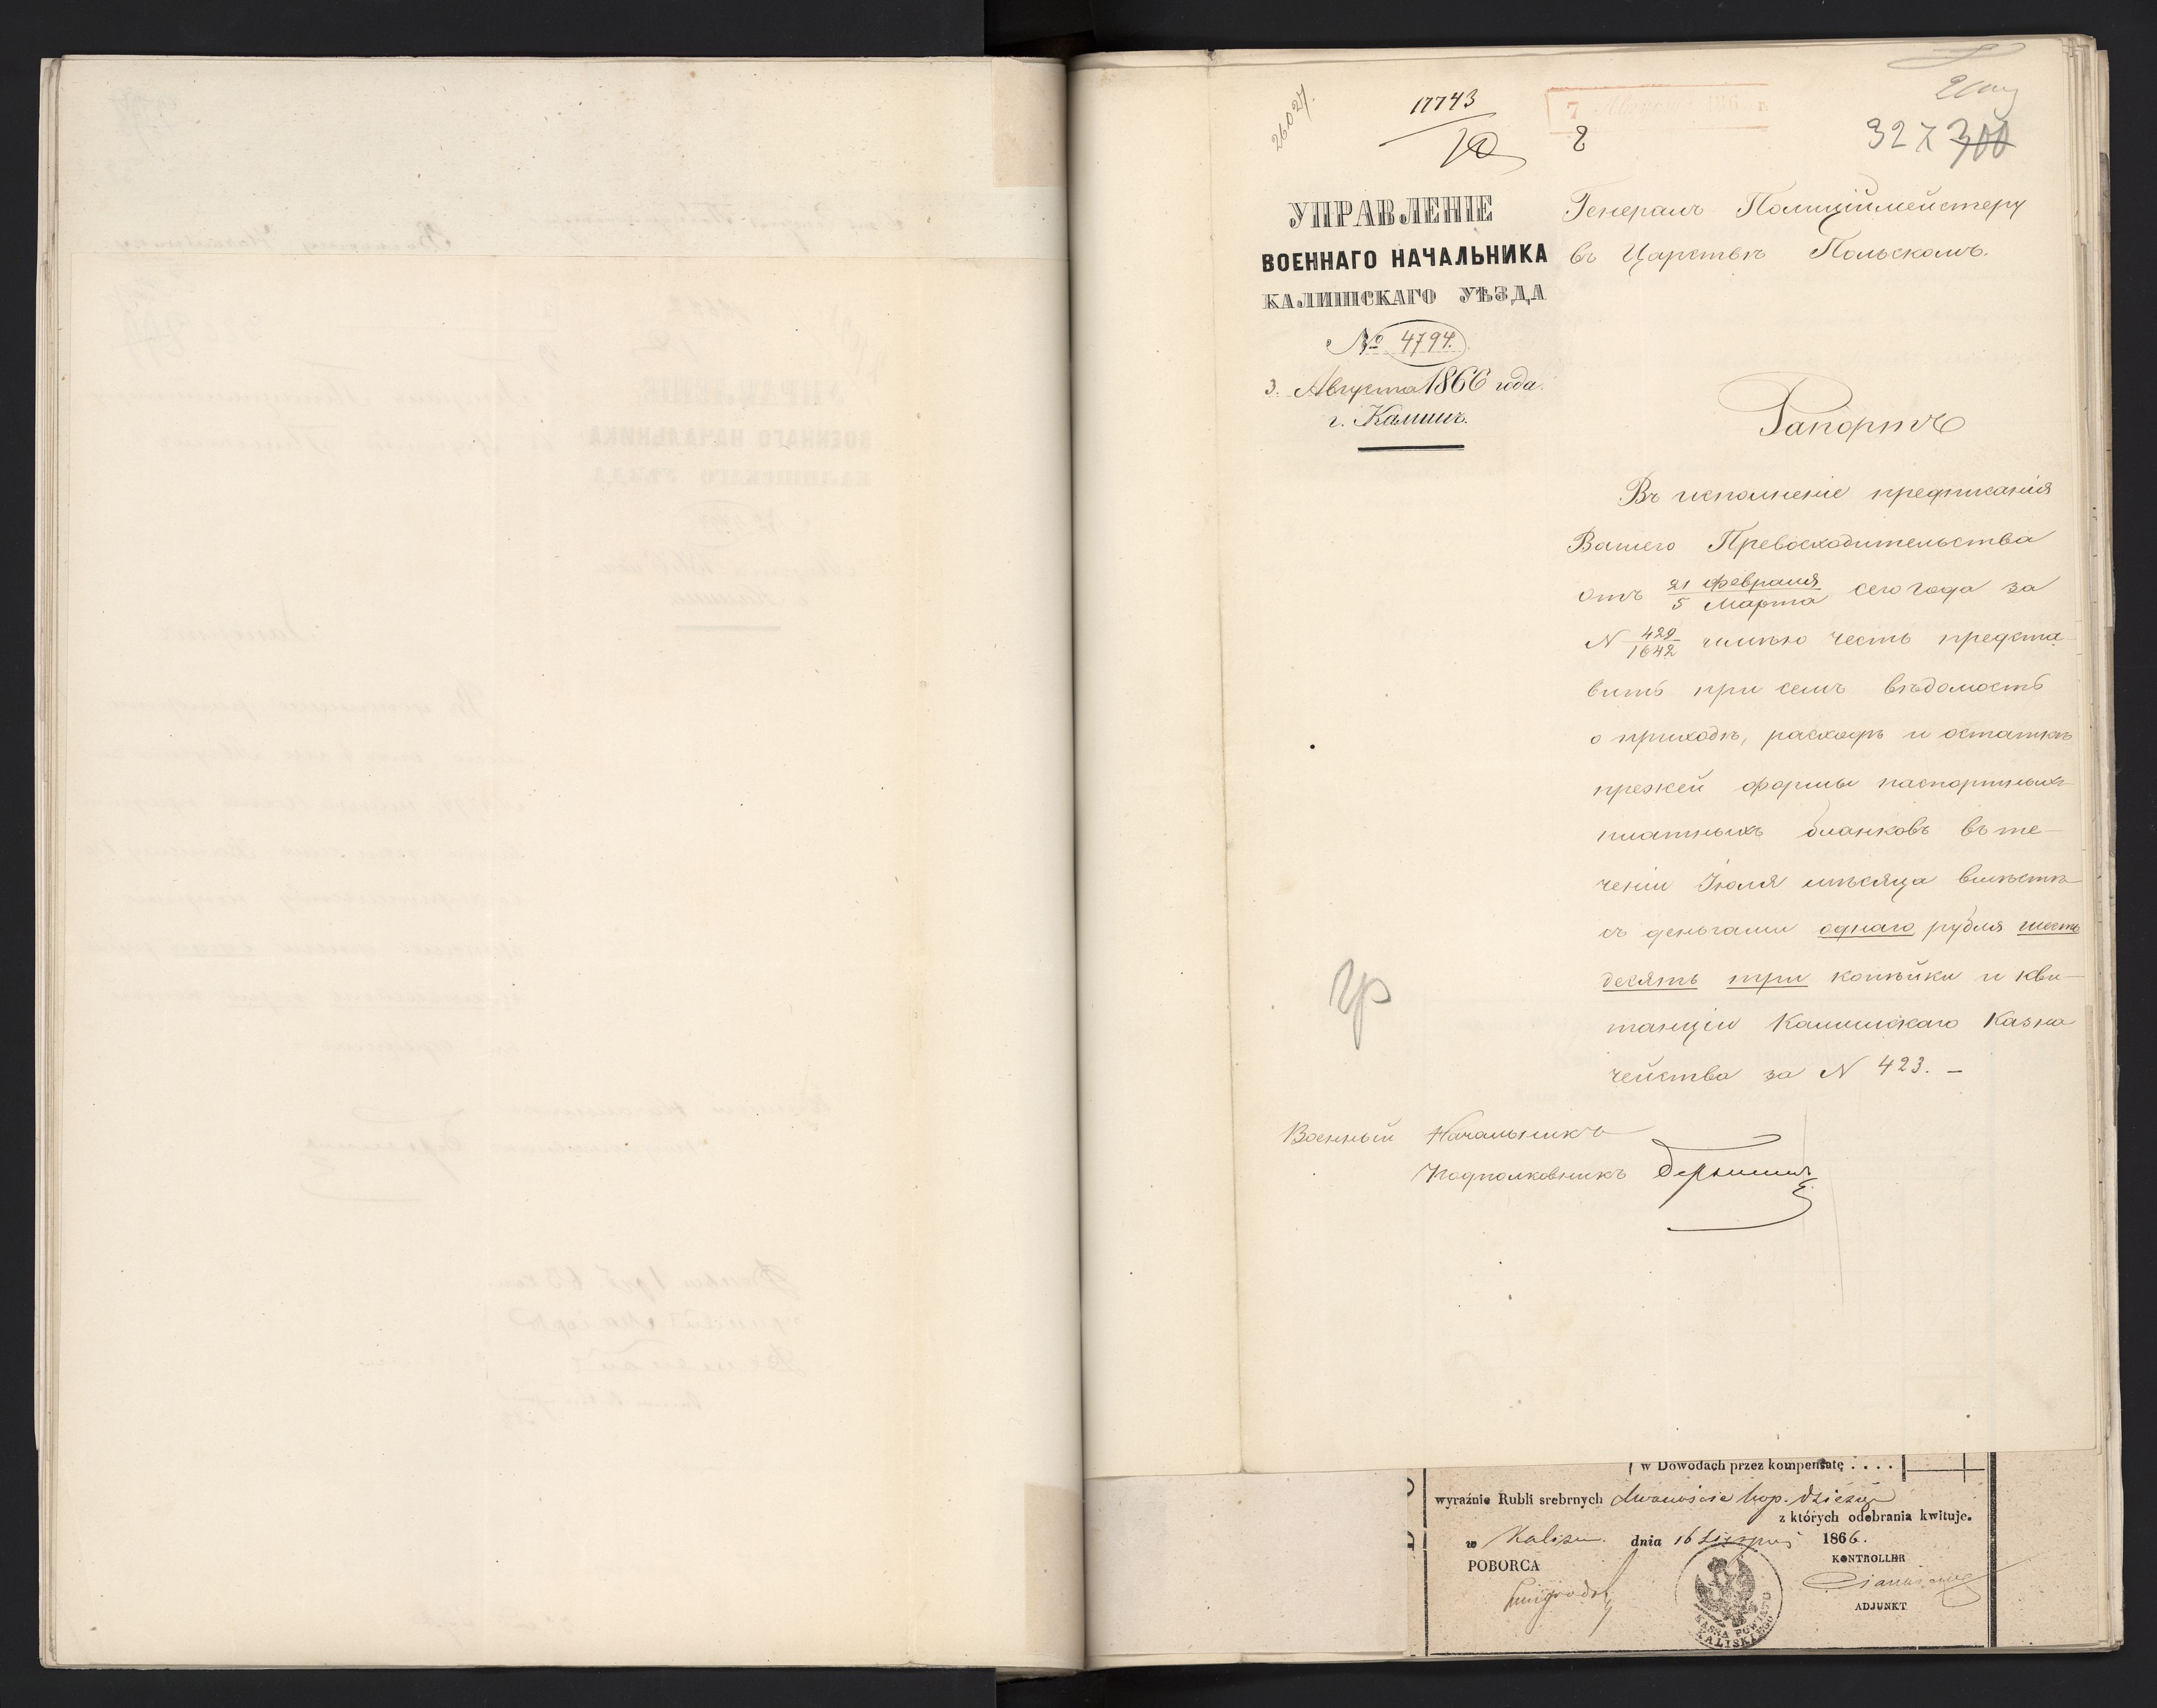 26027.
17743
10
7 Августа 186 г.
8
327 300
УПРАВЛЕНІЕ
ВОЕННАГО НАЧАЛЬНИКА
КАЛИШСКАГО УѢЗДА
№ 4794.
3. Августа 1866 года.
г. Калишъ.
Генералъ Полиціймейстеру
въ Царствѣ Польскомъ.
Рапортъ
Въ исполненіе предписанія
Вашего Превосходительства
отъ 21 Февраля / 5 Марта сего года за
N 429/1642 имѣю честь предста
вить при семъ вѣдомость
о приходѣ, расходѣ и остаткѣ
прежней формы паспортныхъ
платныхъ бланковъ въ те-
ченіи Іюля мѣсяца вмѣстѣ
съ деньгами однаго рубля шесть
десять три копѣйки и кви-
танціи Калишскаго Казна
чейства за N 423. –
Военный Начальникъ
Подполковникъ
w Dowodach przez kompensatę . . . .
wyraźnie Rubli srebrnych dwanaście kop. dziesięć
z których odebrania kwituje.
w Kaliszu dnia 16 Sierpnia 1866.
POBORCA
KONTROLLER
ADJUNKT
KASSA POWIATU
KALISKIEGO